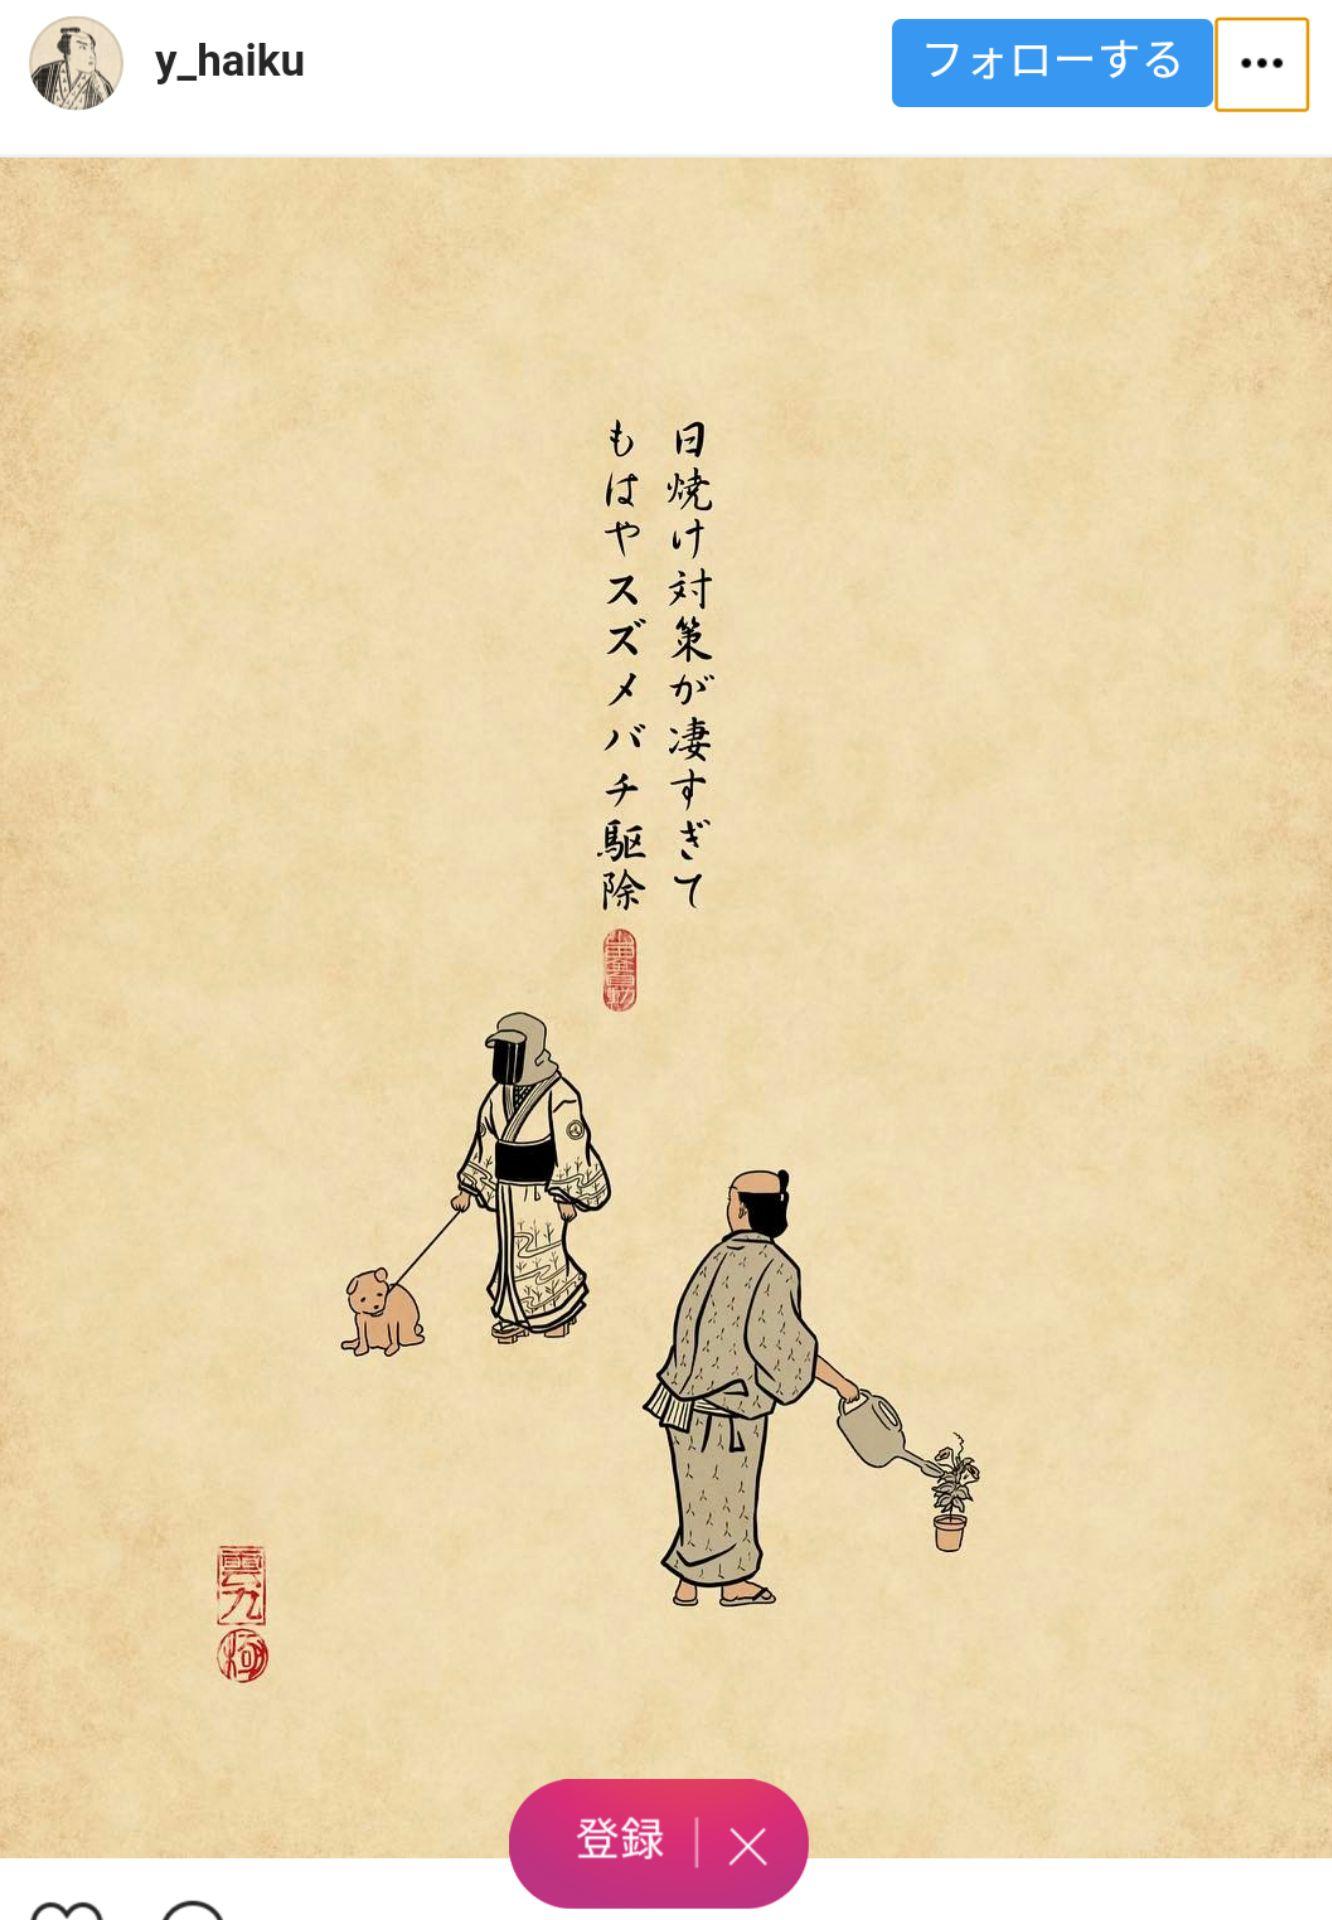 y_haiku
フォローする
日焼け対策が凄すぎて
もはやスズメバチ駆除
登録